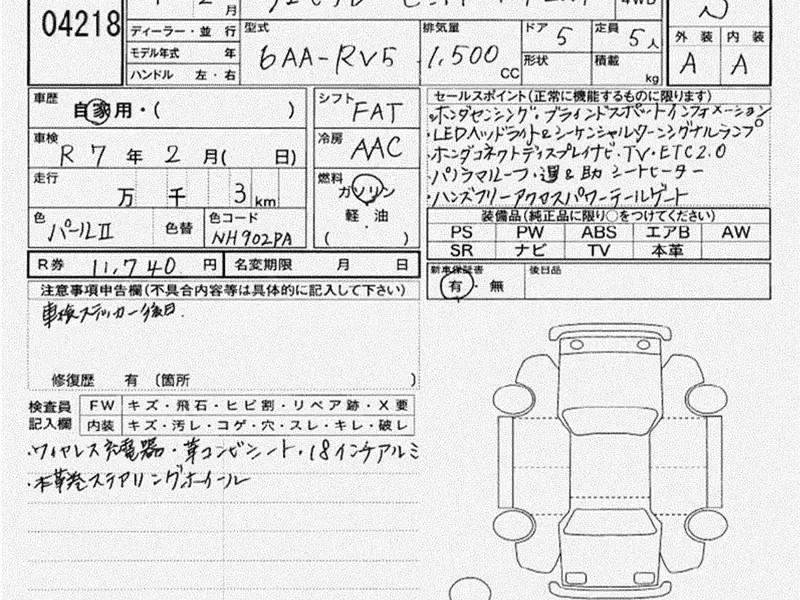 04218
月
4WD
ディーラー・並 行
モデル年式 年
ハンドル 左・右
型式
6AA-RV5
排気量
1,500
CC
ドア
5
形状
定員
5人
積載
kg
外 装
内 装
A
A
車歴
自家用・( )
シフト
FAT
車検
R 7 年 2 月( 日)
冷房
AAC
走行
万 千 3 km
燃料
ガソリン
軽 油
( )
色
パールⅡ
色替
色コード
NH902PA
R券 11,740 円
名変期限 月 日
セールスポイント(正常に機能するものに限ります)
・ホンダセンシング・ブラインドスポットインフォメーション
・LEDヘッドライト&シーケンシャルターンシグナルランプ
・ホンダコネクトディスプレイナビ・TV・ETC2.0
・パノラマルーフ・運&助 シートヒーター
・ハンズフリーアクセスパワーテールゲート
装備品(純正品に限り○をつけてください)
PS PW ABS エアB AW
SR ナビ TV 本革
新車保証書
有・無
後日品
注意事項申告欄(不具合内容等は具体的に記入して下さい)
車検ステッカー後日.
修復歴 有 〔箇所 〕
検査員
記入欄
FW キズ・飛石・ヒビ割・リペア跡・X要
内装 キズ・汚レ・コゲ・穴・スレ・キレ・破レ
・ワイヤレス充電器・革コンビシート・18インチアルミ
・本革巻ステアリングホイール